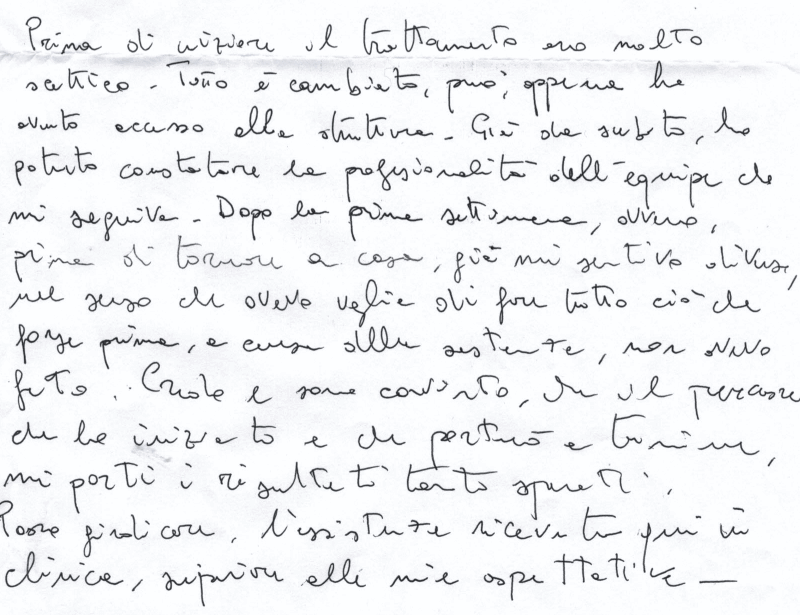 Prima di iniziare il trattamento ero molto
scettico. Tutto è cambiato, però, appena ho
avuto accesso alla struttura. Già da subito, ho
potuto constatare la professionalità dell'equipe che
mi seguiva. Dopo la prima settimana, ovvero,
prima di tornare a casa, già mi sentivo diverso,
nel senso che avevo voglia di fare tutto ciò che
forse prima, a causa delle sostanze, non avevo
fatto. Credo e sono convinto, che il percorso
che ho iniziato e che porterò a termine,
mi porti i risultati tanto sperati.
Posso giudicare, l'assistenza ricevuta qui in
clinica, superiore alle mie aspettative —